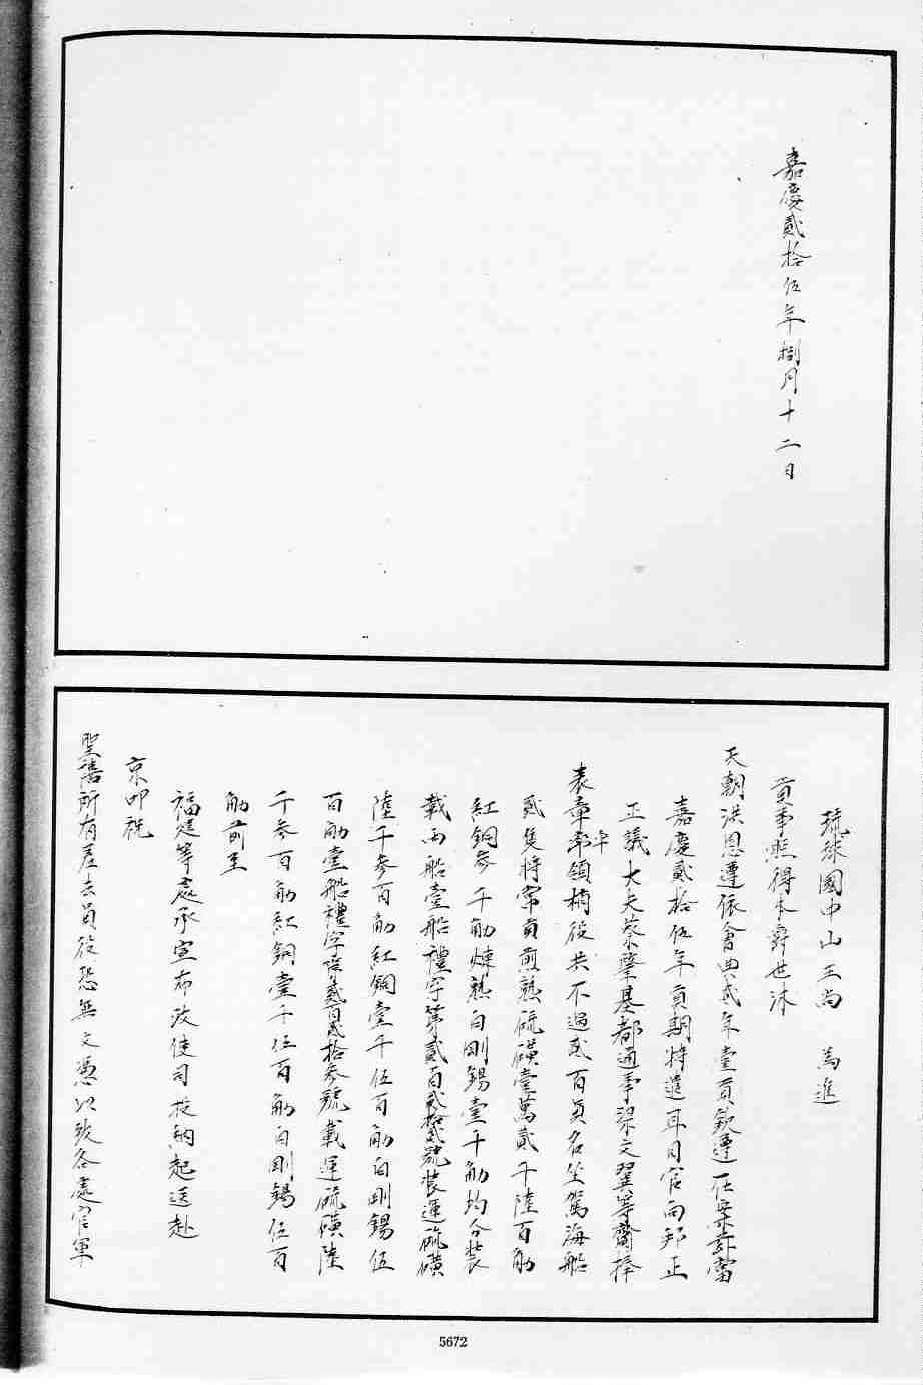 嘉慶貳拾伍年捌月十二日
琉球國中山王尚　為進
貢事照得本爵世沐
天朝洪恩遵依會典貳年壹貢欽遵在案茲當
嘉慶貳拾伍年貢期特遣耳目官向邦正
正議大夫蔡肇基都通事梁文翼等齎捧
表章率領梢役共不過貳百員名坐駕海船
貳隻將常貢煎熟硫磺壹萬貳千陸百觔
紅銅參千觔煉熟白剛錫壹千觔均分裝
載兩船壹船禮字第貳百貳拾貳號裝運硫磺
陸千參百觔紅銅壹千伍百觔白剛錫伍
百觔壹船禮字第貳百貳拾參號載運硫磺陸
千參百觔紅銅壹千伍百觔白剛錫伍百
觔前至
福建等處承宣布政使司投納起送赴
京叩祝
聖禧所有差去員役恐無文憑以致各處官軍
5672